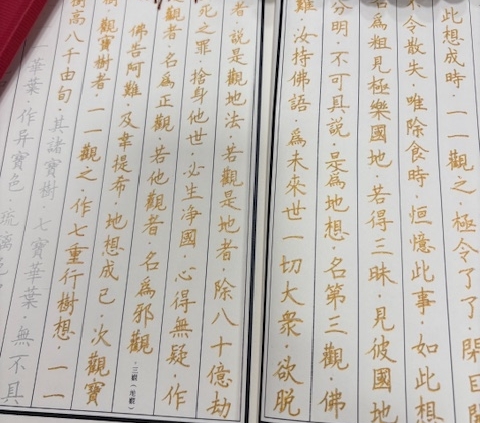 此想成時．一一觀之．極令了了．閉目開
不令散失．唯除食時．恒憶此事．如此想
名為粗見極樂國地．若得三昧．見彼國地
分明．不可具說．是為地想．名第三觀．佛
難．汝持佛語．為未來世一切大眾．欲脫
者．說是觀地法．若觀是地者．除八十億劫
死之罪．捨身他世．必生淨國．心得無疑．作
是觀者．名為正觀．若他觀者．名為邪觀．三觀(地觀)
佛告阿難．及韋提希．地想成已．次觀寶
觀寶樹者．一一觀之．作七重行樹想．一一
樹高八千由旬．其諸寶樹．七寶華葉．無不具
一華葉．作異寶色．琉璃色